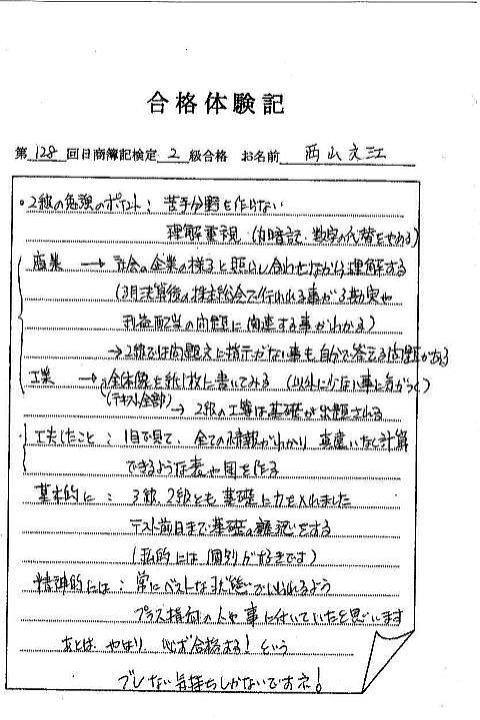 合格体験記
第 128 回日商簿記検定 2 級合格 お名前 西山文江
・2級の勉強のポイント： 苦手分野を作らない
理解重視 （丸暗記・数字の代替をやめる）
商業 → 社会の企業の様子と照らし合わせながら理解する
（3月決算後の株主総会で行われる事が3勘定や
利益配当の問題に関連する事がわかる）
→2級では問題文に指示がない事も自分で答える問題がある
工業 → 全体像を紙1枚に書いてみる （以外に少ない事に気がつく）
（テキスト全部） → 2級の工簿は基礎が出題される
・工夫したこと： 1目で見て、全ての情報がわかり 計算
できるような表や図を作る
基本的に： 3級、2級とも基礎に力を入れました
テスト前日まで基礎の確認をする
（私的には個別が好きです）
精神的には： 常にベストな状態でいられるよう
プラス指向の人や事に付いていたと思います
あとは、やはり 必ず合格する！という
ブレない気持ちしかないですネ！